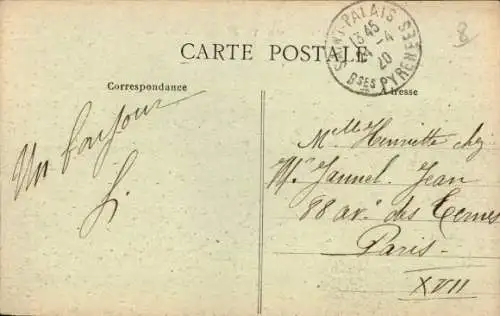 SAINT-PALAIS
13 45
-4
20
BSES PYRENEES
8
CARTE POSTALE
Correspondance
Adresse
Un bonjour
Melle Henriette chez
Mr Jannel. Jean
88 av. des Ternes
Paris.
XVII